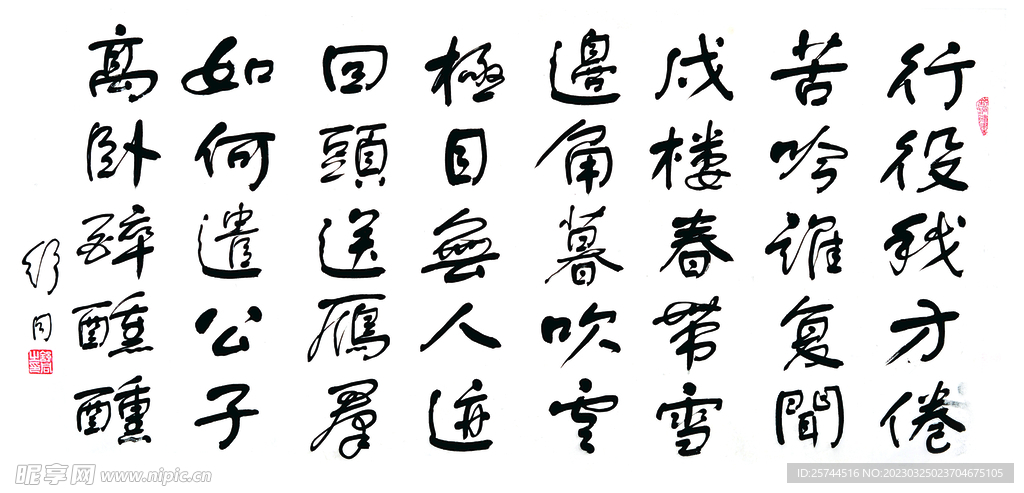 行役我方倦
苦吟誰复聞
戍樓春帶雪
邊角暮吹雲
極目無人迹
回頭送鴈羣
如何遣公子
高卧醉醺醺
舒同
昵享网 www.nipic.cn
ID:25744516 NO:20230325023704675105